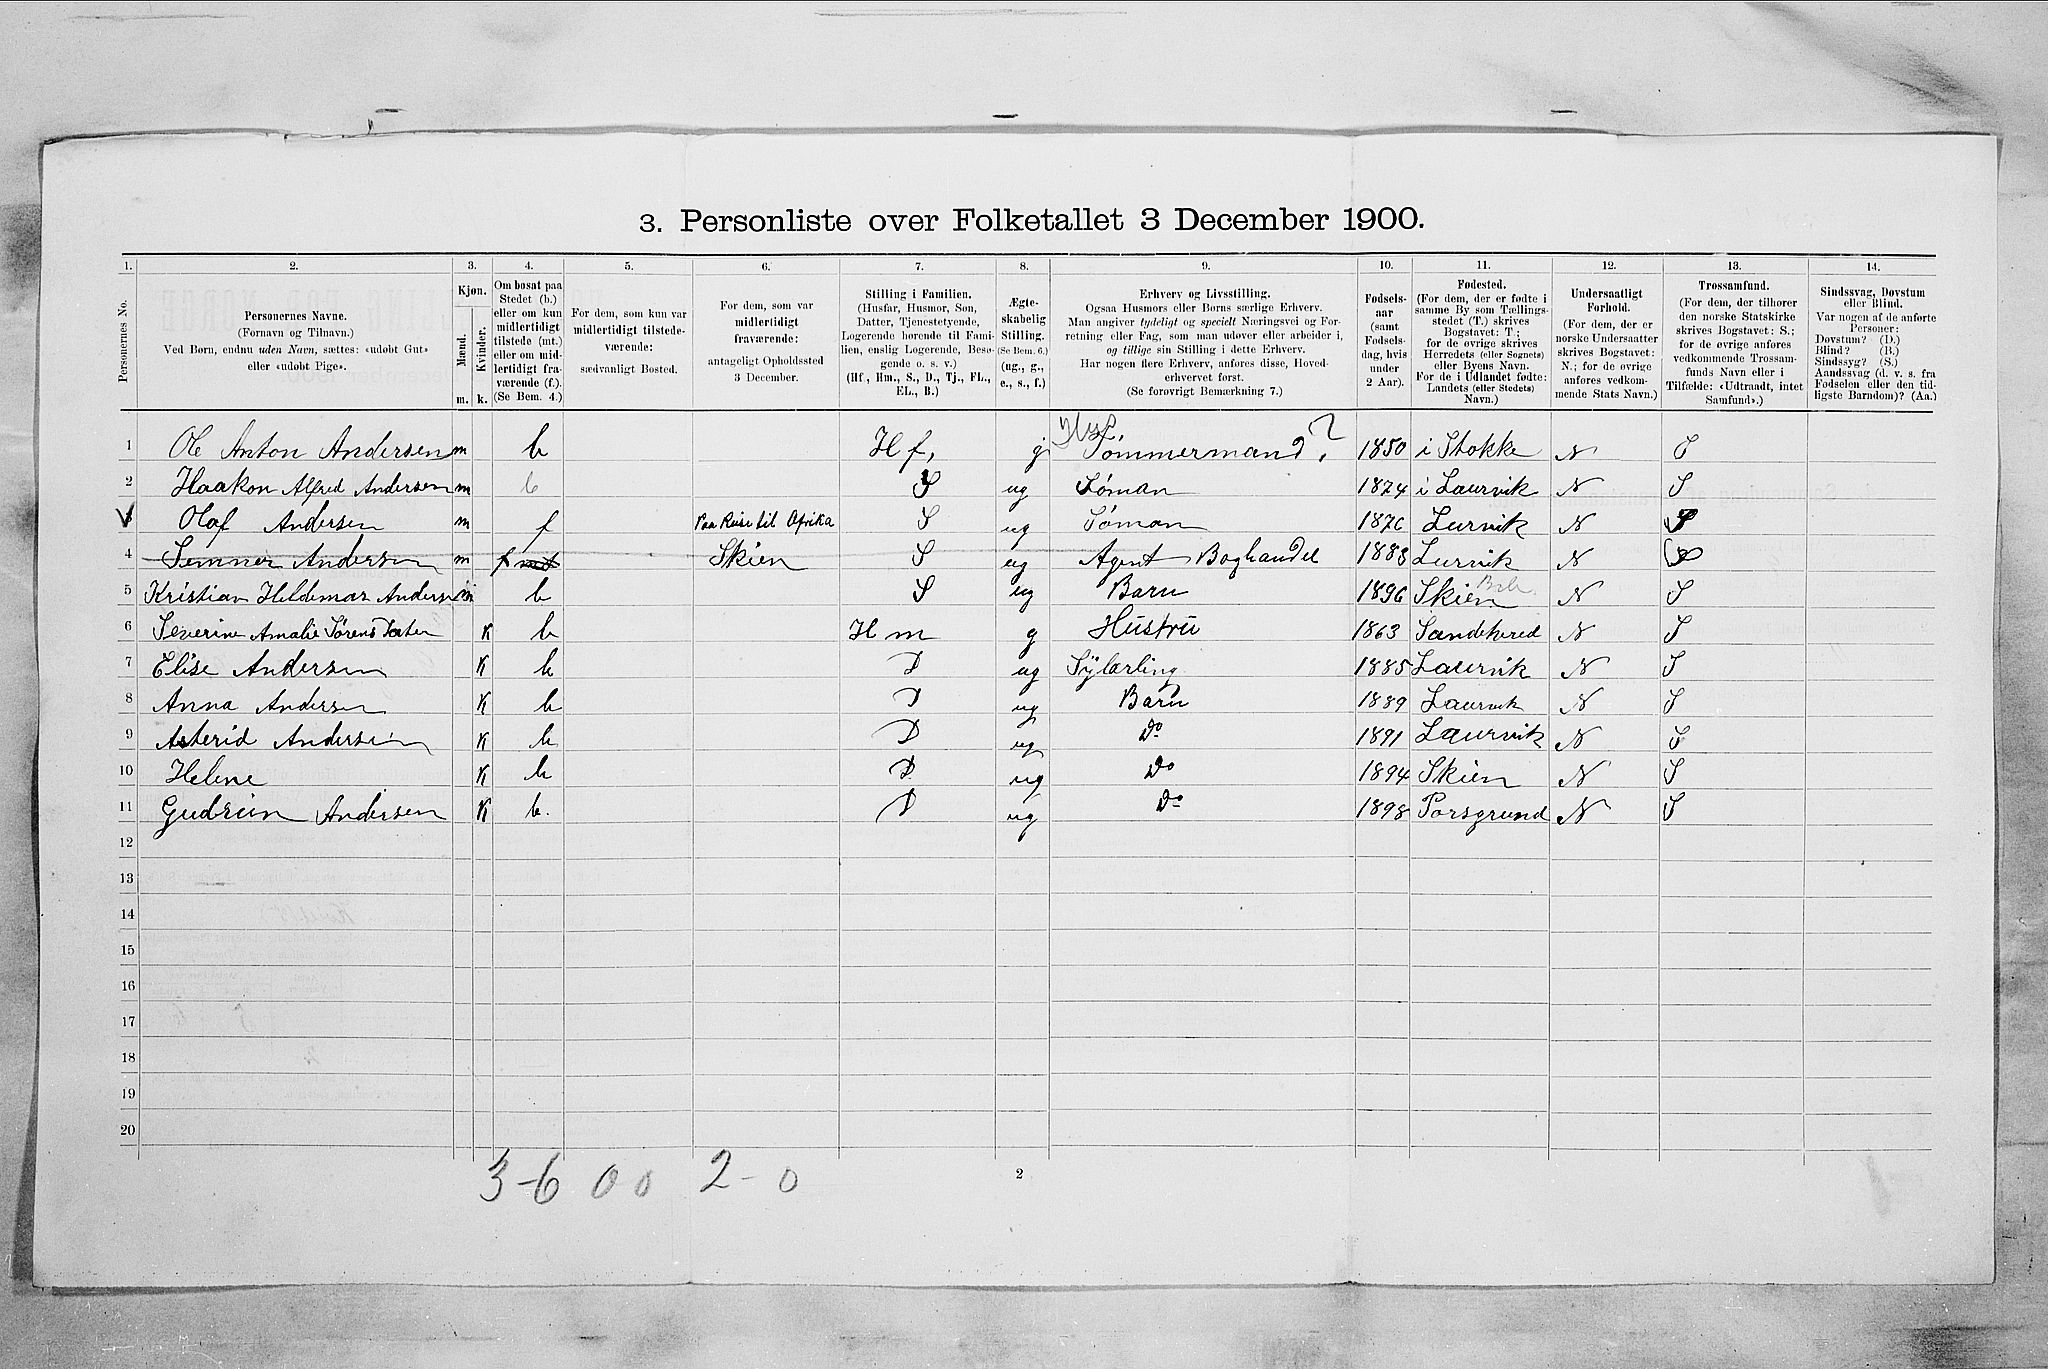 3. Personliste over Folketallet 3 December 1900.
1. 2. 3. 4. 5. 6. 7. 8. 9. 10. 11. 12. 13. 14.
Personernes No.
Personernes Navne.
(Fornavn og Tilnavn.)
Ved Børn, endnu uden Navn, sættes: «udøbt Gut»
eller «udøbt Pige».
Kjøn.
Mænd. Kvinder.
m. k.
Om bosat paa
Stedet (b.)
eller om kun
midlertidigt
tilstede (mt.)
eller om mid-
lertidigt fra-
værende (f.).
(Se Bem. 4.)
For dem, som kun var
midlertidigt tilstede-
værende:
sædvanligt Bosted.
For dem, som var
midlertidigt
fraværende:
antageligt Opholdssted
3 December.
Stilling i Familien.
(Husfar, Husmor, Søn,
Datter, Tjenestetyende,
Logerende hørende til Fami-
lien, enslig Logerende, Besø-
gende o. s. v.)
(Hf., Hm., S., D., Tj., FL.,
EL., B.)
Ægte-
skabelig
Stilling.
(Se Bem. 6.)
(ug., g.,
e., s., f.)
Erhverv og Livsstilling.
Ogsaa Husmors eller Børns særlige Erhverv.
Man angiver tydeligt og specielt Næringsvei og For-
retning eller Fag, som man udøver eller arbeider i,
og tillige sin Stilling i dette Erhverv.
Har nogen flere Erhverv, anføres disse, Hoved-
erhvervet først.
(Se forøvrigt Bemærkning 7.)
Fødsels-
aar
(samt
Fødsels-
dag, hvis
under
2 Aar).
Fødested.
(For dem, der er fødte i
samme By som Tællings-
stedet (T.) skrives
Bogstavet: T;
for de øvrige skrives
Herredets (eller Sognets)
eller Byens Navn.
For de i Udlandet fødte:
Landets (eller Stedets)
Navn.)
Undersaatligt
Forhold.
(For dem, der er
norske Undersaatter
skrives Bogstavet:
N.; for de øvrige
anføres vedkom-
mende Stats Navn.)
Trossamfund.
(For dem, der tilhører
den norske Statskirke
skrives Bogstavet: S.;
for de øvrige anføres
vedkommende Trossam-
funds Navn eller i
Tilfælde: «Udtraadt, intet
Samfund».)
Sindssvag, Døvstum
eller Blind.
Var nogen af de anførte
Personer:
Døvstum? (D.)
Blind? (B.)
Sindssyg? (S.)
Aandssvag (d. v. s. fra
Fødselen eller den tid-
ligste Barndom)? (Aa.)
1 Ole Anton Andersen m b Hf, g Tømmermand, ? 1850 i Stokke N S
2 Haakon Alfred Andersen m b S ug Sóman 1874 i Laurvik N S
3 Olaf Andersen m f Paa Reise til Afrika S ug Sóman 1876 Lurvik N S
4 Andersen m f mt Skien S ug Agent Boghandel 1883 Lurvik N S
5 Kristian Heldemar Andersen m b S ug Barn 1896 Skien N S
6 Severine Amalie Sørens Dater K b Hm g Hustru 1863 Sandehered N S
7 Elise Andersen K b D ug Sylærling 1885 Laurvik N S
8 Anna Andersen K b D ug Barn 1889 Laurvik N S
9 Asterid Andersen K b D ug Do 1891 Laurvik N S
10 Helene K b D ug Do 1894 Skien N S
11 Gudrun Andersen K b. D ug Do 1898 Porsgrund N S
12
13
14
15
16
17
18
19
20
3-6 0 0 2-0
2